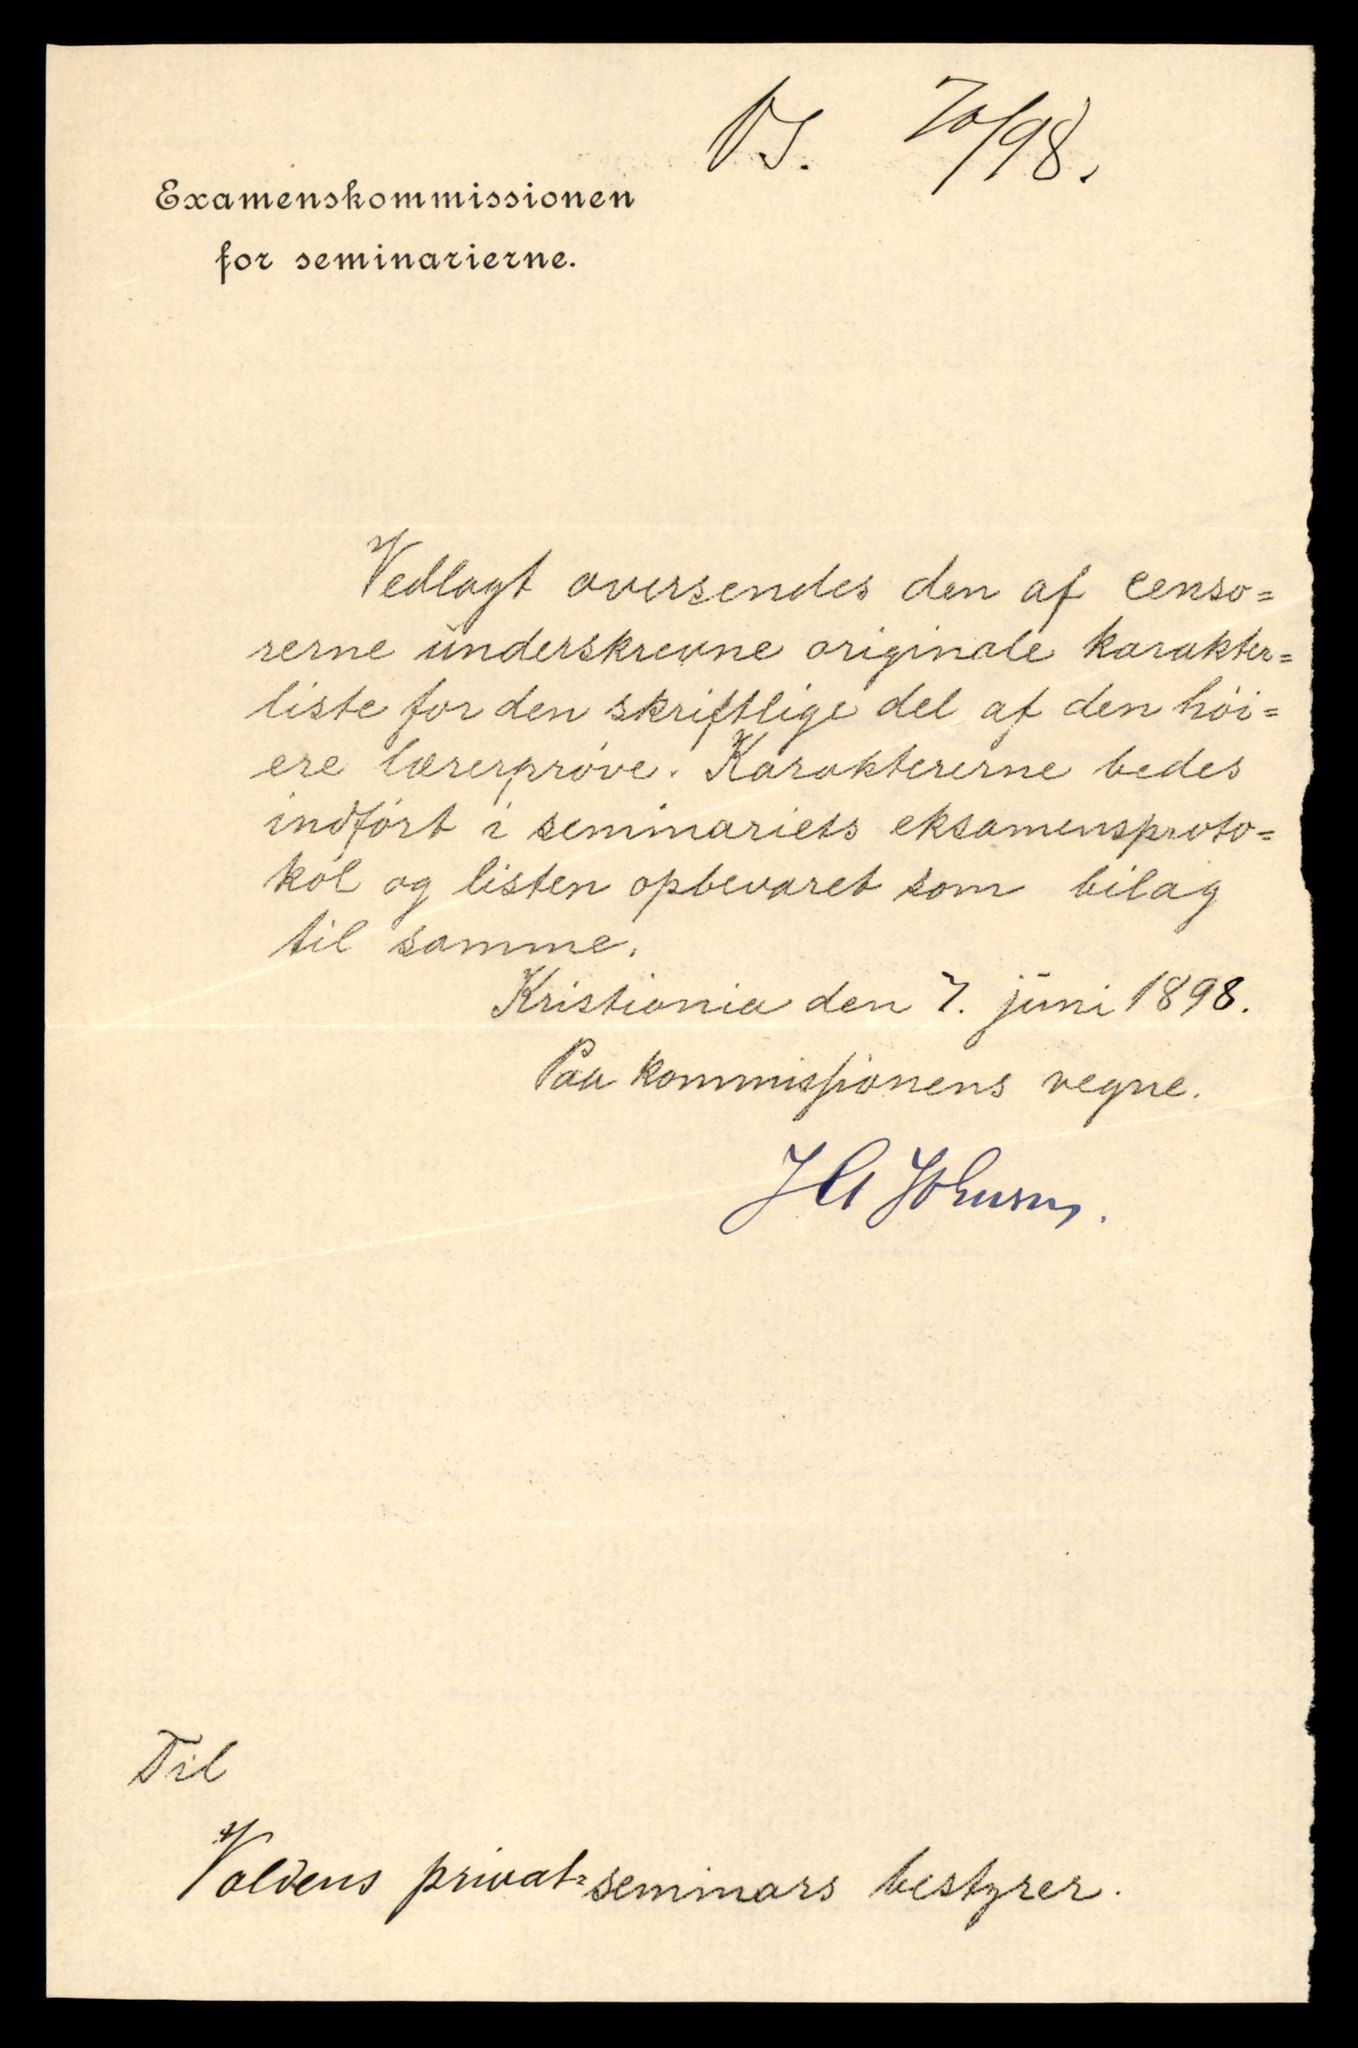 VS. 70/98.
Examenskommissionen
for seminarierne.
Vedlagt oversendes den af censo=
rerne underskrevne originale karakter=
liste for den skriftlige del af den höi=
ere lærerprøve. Karaktererne bedes
indført i seminariets eksamensproto=
kol og listen opbevaret som bilag
til samme.
Kristiania den 7. juni 1898.
Paa kommissionens vegne.
J A Johnsen.
Til
Voldens privat=seminars bestyrer.